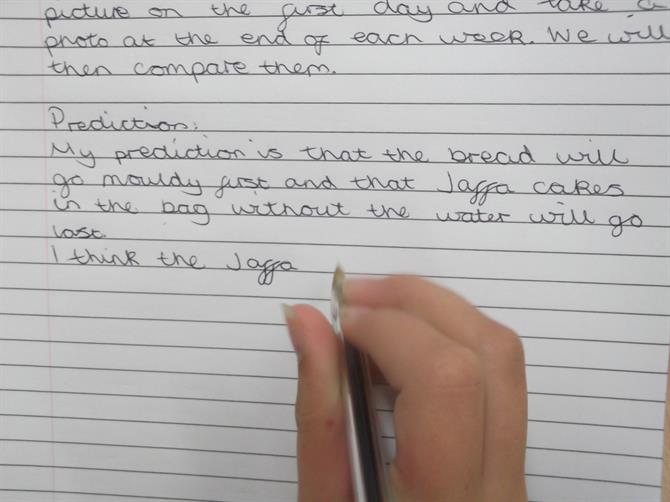 picture on the first day and take a
photo at the end of each week. We will
then compare them.
Prediction:
My prediction is that the bread will
go mouldy first and that Jaffa cakes
in the bag without the water will go
last.
I think the Jaffa